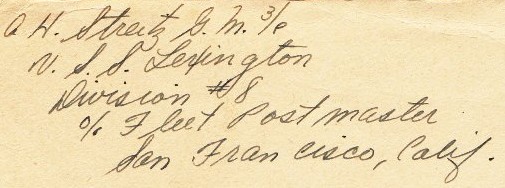 A H. Streitz G. M. 3/c
U. S. S. Lexington
Division #8
c/o Fleet Postmaster
San Francisco, Calif.